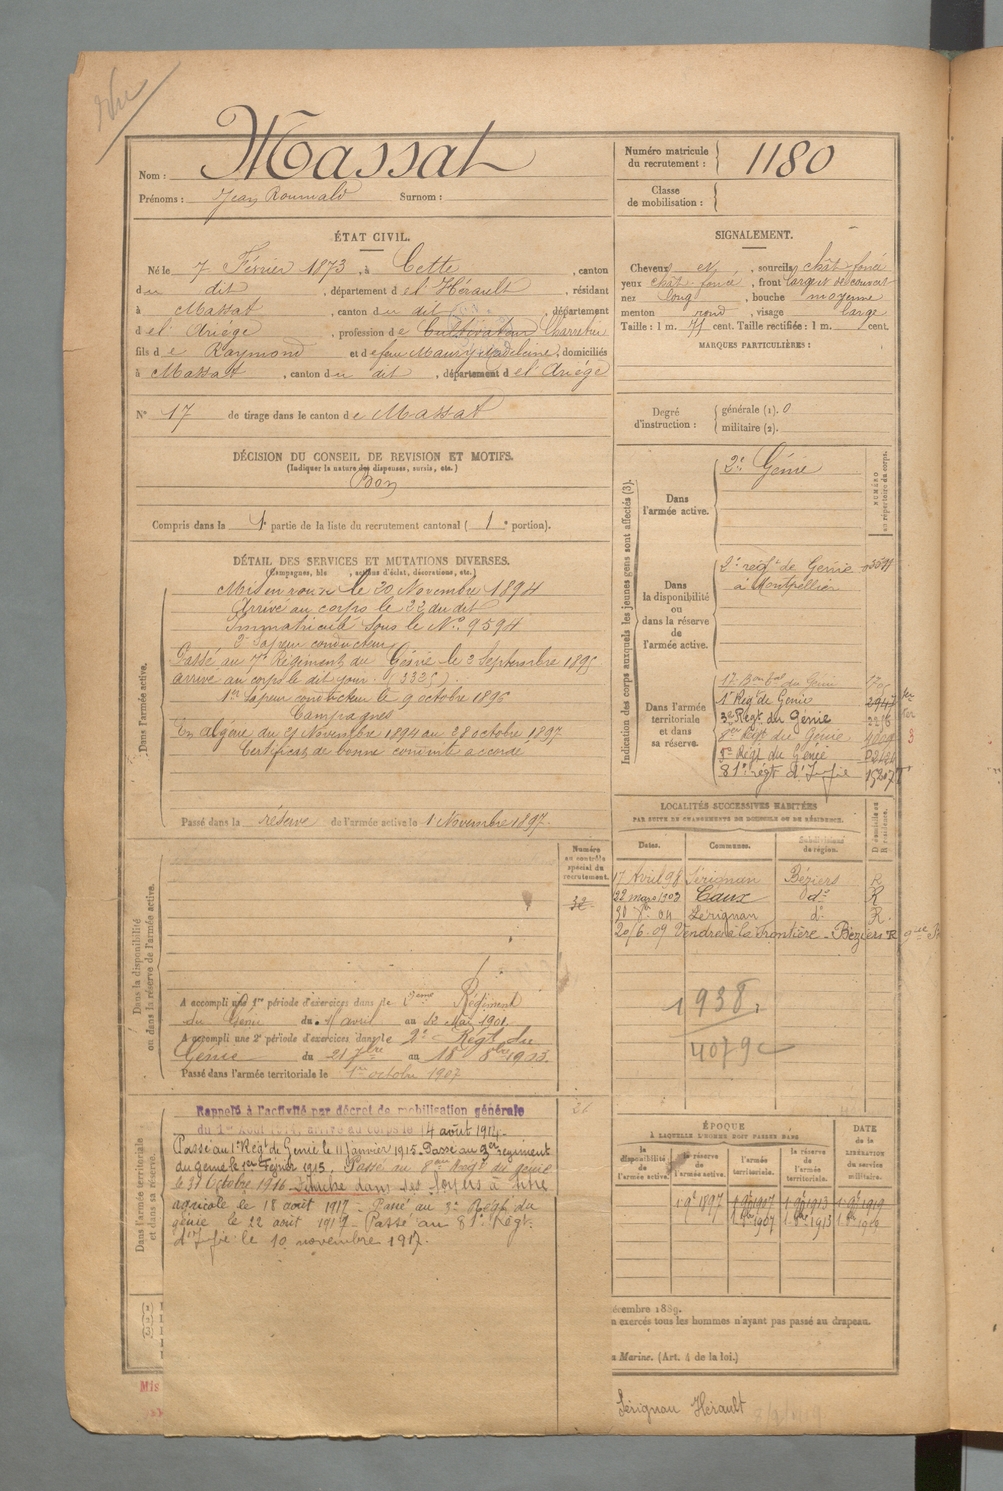 Nom : Massat
Prénoms : Jean Roumald Surnom :
Numéro matricule du recrutement : 1180
Classe de mobilisation :
ÉTAT CIVIL.
Né le 7 Février 1873, à Cette, canton
du dit, département de l'Hérault, résidant
à Massat, canton du dit, département
de l'Ariège, profession de Cultivateur Charretier
fils de Raymond et de feu Maury Madeleine, domiciliés
à Massat, canton du dit, département de l'Ariège
N° 17 de tirage dans le canton de Massat
SIGNALEMENT.
Cheveux et, sourcils chât-foncé
yeux chât-foncé, front large et découvert
nez long, bouche moyenne
menton rond, visage large
Taille : 1 m. 77 cent. Taille rectifiée : 1 m. cent.
MARQUES PARTICULIÈRES :
Degré d'instruction : générale (1). 0
militaire (2).
DÉCISION DU CONSEIL DE REVISION ET MOTIFS.
(Indiquer la nature des dispenses, sursis, etc.)
Bon
Compris dans la 1e partie de la liste du recrutement cantonal (1e portion).
DÉTAIL DES SERVICES ET MUTATIONS DIVERSES.
(Campagnes, actions d'éclat, décorations, etc.)
Dans l'armée active.
Mis en route le 20 Novembre 1894
Arrivé au corps le 22 du dit
Immatriculé sous le N° 9594
2e Sapeur conducteur
Passé au 7e Régiment du Génie le 3 Septembre 1895
arrivé au corps le dit jour (3325)
1er Sapeur conducteur le 9 octobre 1896
Campagnes
En Algérie du 21 Novembre 1894 au 28 octobre 1897
Certificat de bonne conduite accordé
Passé dans la réserve de l'armée active le 1 Novembre 1897.
Indication des corps auxquels les jeunes gens sont affectés (3).
NUMÉRO au répertoire du corps.
Dans l'armée active.
2e Génie
Dans la disponibilité ou dans la réserve de l'armée active.
2e régt de Génie
à Montpellier
Dans l'armée territoriale et dans sa réserve.
17 Bon du Génie
1er Régt de Génie 2947
3e Régt du Génie
8e Régt du Génie
Régt du Génie
81e régt d'Infie
LOCALITÉS SUCCESSIVES HABITÉES
PAR SUITE DE CHANGEMENTS DE DOMICILE OU DE RÉSIDENCE.
Dates. Communes. Subdivisions de région. D domicile ou R résidence.
17 Avril 98 Sérignan Béziers R
22 mars 1903 Caux do R
04 Sérignan do R.
20/6.09 Vendres à la Frontière - Béziers R
1938
4079
Numéro au contrôle spécial du recrutement.
32
Dans la disponibilité ou dans la réserve de l'armée active.
A accompli une 1re période d'exercices dans le Régiment
du Génie du avril au 12 Mai 1901
A accompli une 2e période d'exercices dans le 2e Régt du
Génie du 21 7bre au 18 8bre 1903
Passé dans l'armée territoriale le 1er octobre 1907
Dans l'armée territoriale et dans sa réserve.
Rappelé à l'activité par décret de mobilisation générale
du 1er Août 1914, arrivé au corps le 14 août 1914.
Passé au 1er Régt de Génie le 11 janvier 1915. Passé au régiment
du génie le 1er Février 1915. Passé au 8e Régt du génie
le 31 Octobre 1916. Détaché dans ses foyers à titre
agricole le 18 août 1917 - Passé au 3e Régt du
génie le 22 août 1917 - Passé au 81e Régt.
d'Infie le 10 novembre 1917.
ÉPOQUE
À LAQUELLE L'HOMME DOIT PASSER DANS
la disponibilité de l'armée active. la réserve de l'armée active. l'armée territoriale. la réserve de l'armée territoriale.
DATE de la LIBÉRATION du service militaire.
1 9e 1897 1 9e 1907 1 9e 1913 1 9e 1919
1 8re 1907 1 8re 1913 1 8re 1919
écembre 1889.
n exercés tous les hommes n'ayant pas passé au drapeau.
Marine. (Art. 4 de la loi.)
Mis
Sérignan Hérault